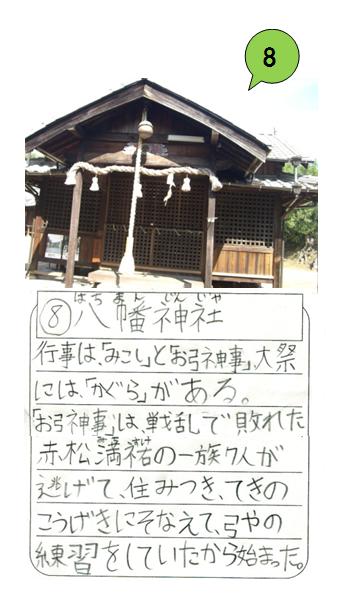 8
はちまんじんじゃ
⑧八幡神社
行事は、「みこし」と「お弓神事」、大祭
には、「かぐら」がある。
「お弓神事」は、戦乱で敗れた
みつすけ
赤松満祐の一族7人が
逃げて、住みつき、てきの
こうげきにそなえて、弓やの
練習をしていたから始まった。